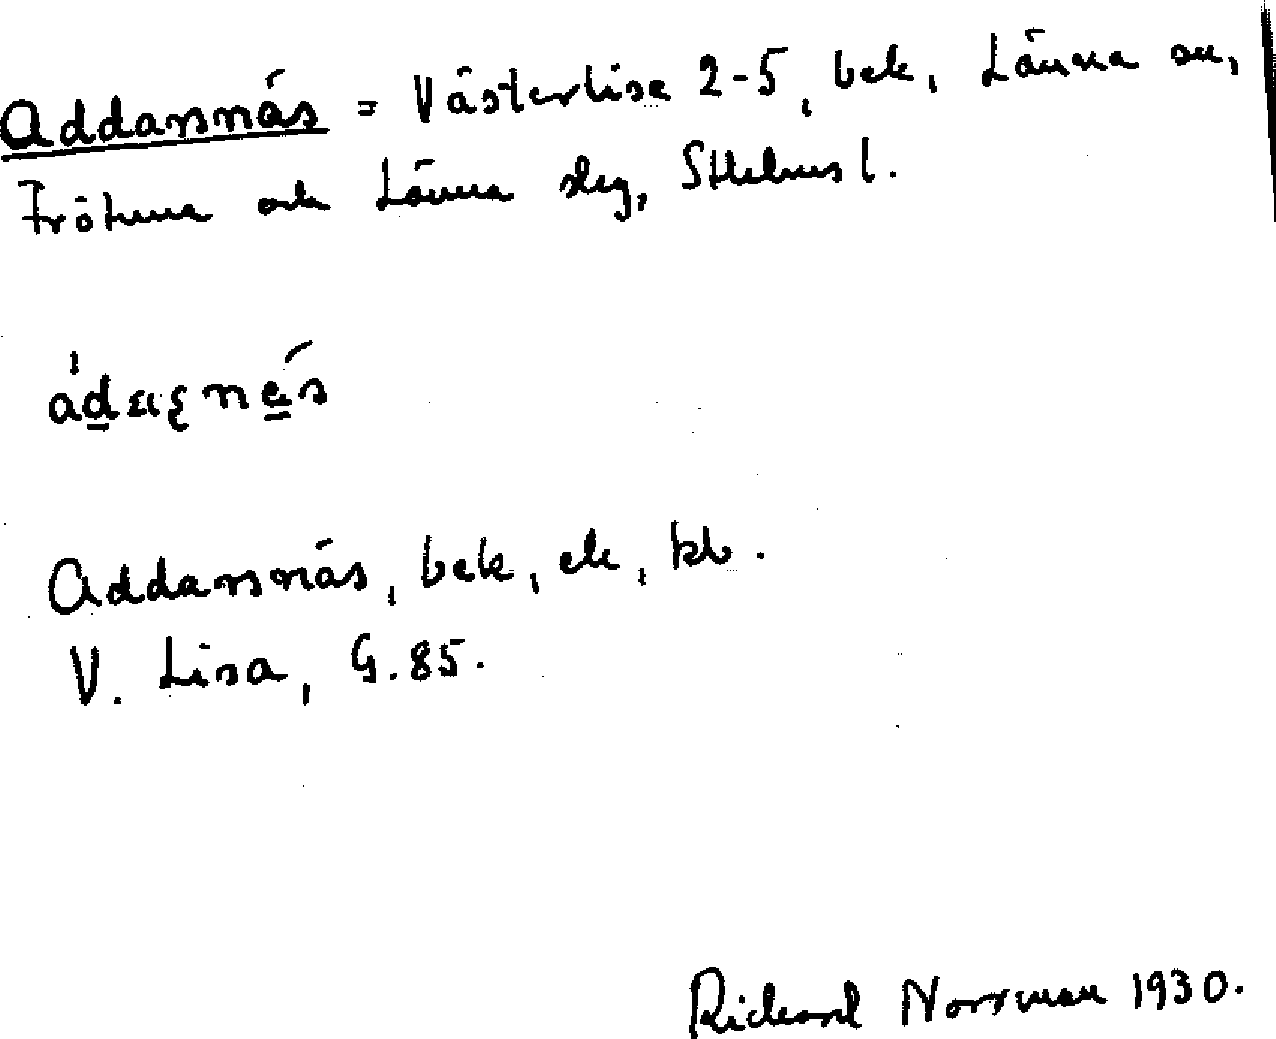 Addarsnäs = Västerlisa 2-5, bek, Länna sn,
Frötuna och Länna slg, Sthlms l.
Addarsnäs, bek, ek, kb.
V. Lisa, G. 85.
Richard Norrman 1930.